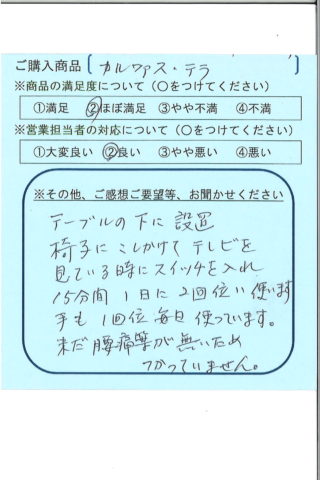 ご購入商品〔カルワァス・テラ〕
※商品の満足度について（〇をつけてください）
①満足 ②ほぼ満足 ③やや不満 ④不満
※営業担当者の対応について（〇をつけてください）
①大変良い ②良い ③やや悪い ④悪い
※その他、ご感想ご要望等、お聞かせください
テーブルの下に設置
椅子にこしかけてテレビを
見ている時にスイッチを入れ
15分間1日に2回位い使います
手も1回位毎日使っています。
未だ腰痛等が無いため
つかっていません。